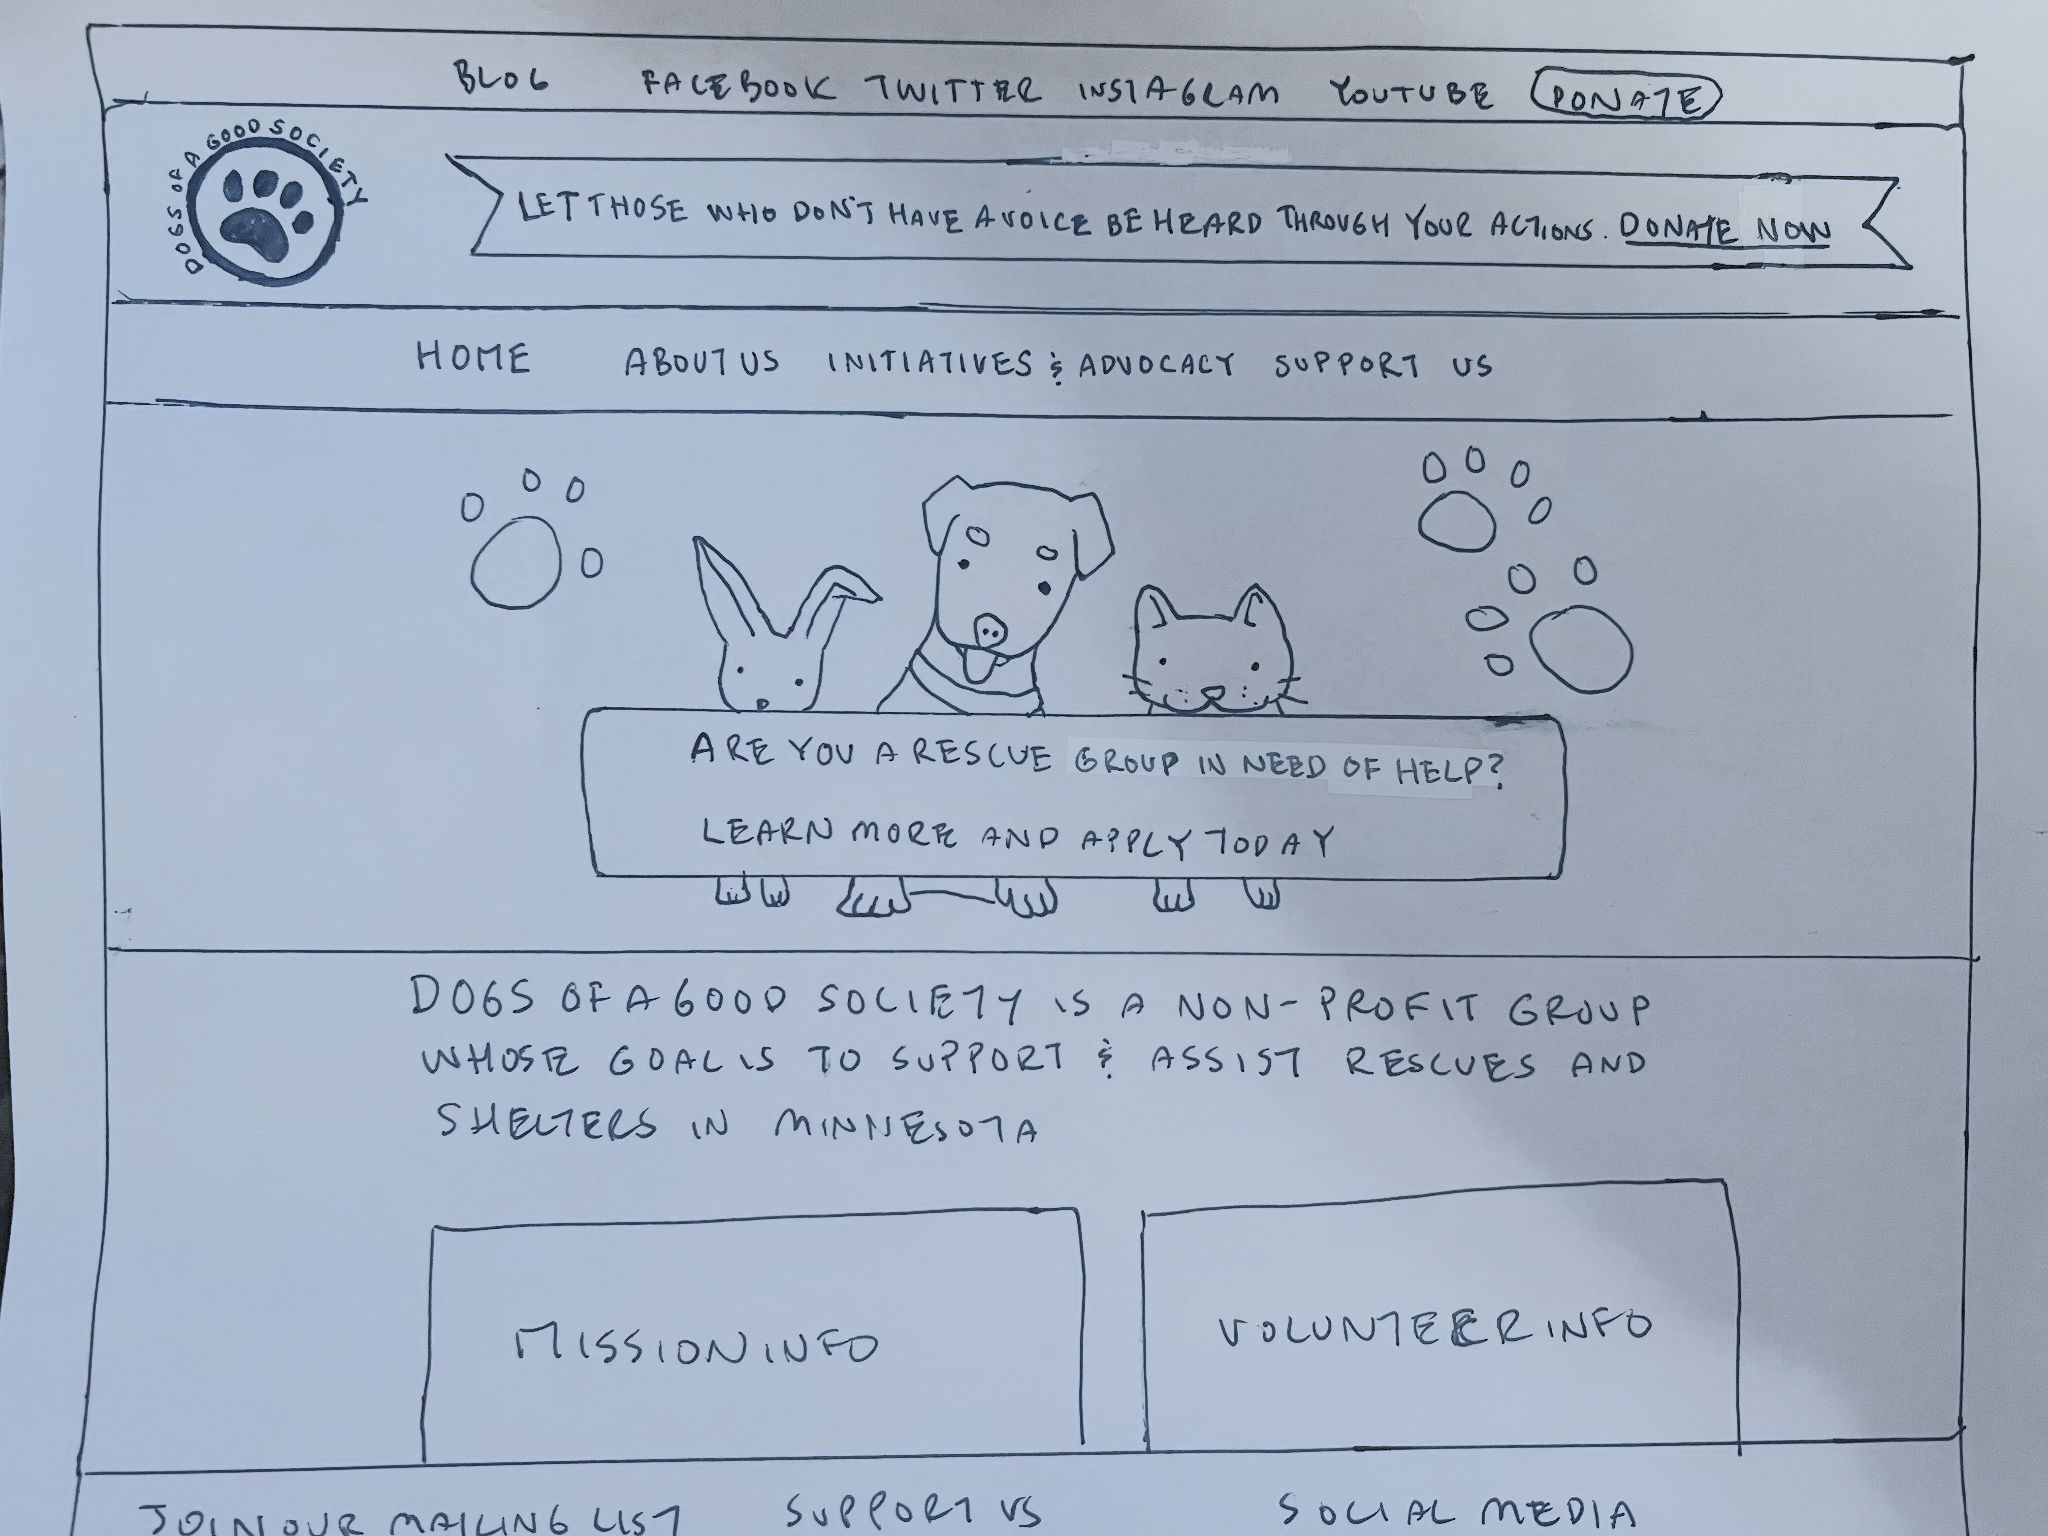 BLOG FACEBOOK TWITTER INSTAGRAM YOUTUBE DONATE
DOGS OF A GOOD SOCIETY
LET THOSE WHO DON'T HAVE A VOICE BE HEARD THROUGH YOUR ACTIONS. DONATE NOW
HOME ABOUT US INITIATIVES & ADVOCACY SUPPORT US
ARE YOU A RESCUE GROUP IN NEED OF HELP?
LEARN MORE AND APPLY TODAY
DOGS OF A GOOD SOCIETY IS A NON-PROFIT GROUP
WHOSE GOAL IS TO SUPPORT & ASSIST RESCUES AND
SHELTERS IN MINNESOTA
MISSION INFO
VOLUNTEER INFO
JOIN OUR MAILING LIST SUPPORT US SOCIAL MEDIA